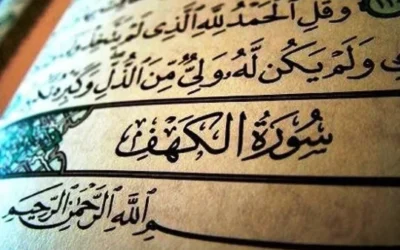 وَقُلِ ٱلۡحَمۡدُ لِلَّهِ ٱلَّذِي لَمۡ يَتَّخِذۡ
وَلَمۡ يَكُن لَّهُۥ وَلِيّٞ مِّنَ ٱلذُّلِّۖ وَكَبِّرۡهُ
سُورَةُ الكَهۡفِ
ٱللَّهِ ٱلرَّحۡمَٰنِ ٱلرَّحِيمِ